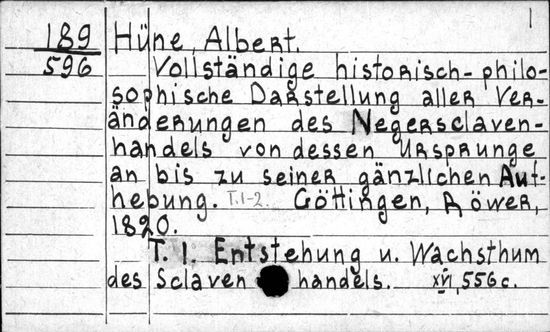 1
189 Hüne, Albert.
596 Vollständige historisch-philo-
sophische Darstellung aller Ver-
änderungen des Negersclaven-
handels von dessen Ursprunge
an bis zu seiner gänzlichen Auf-
hebung. T.1-2. Göttingen, Röwer,
1820.
T. 1. Entstehung u. Wachsthum
des Sclavenhandels. XVI, 556 c.